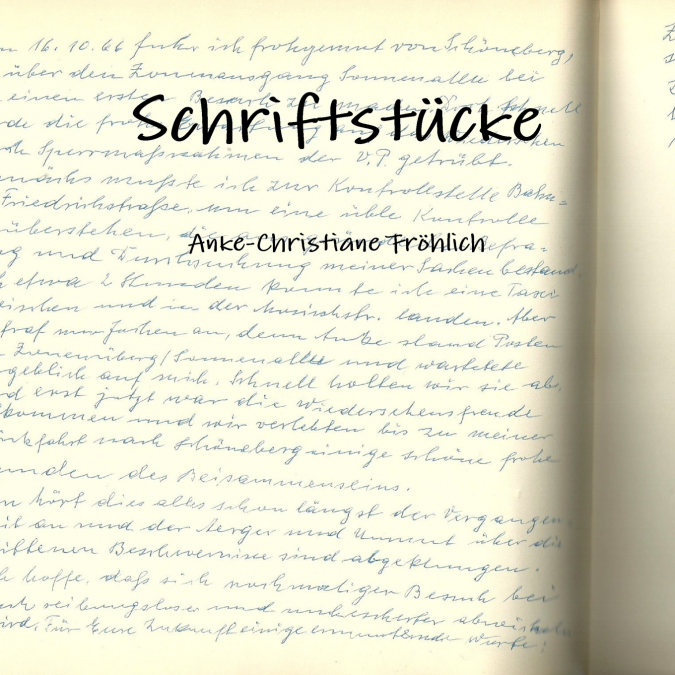 16. 10. 66 fuhr ich frohgemut von Schöneberg,
über den Zonenausgang Sonnenallee bei
einen ersten Besuch zu machen. Doch schnell
Schriftstücke
de die
Sperrmaßnahmen der V.P. getrübt.
mußte ich zur Kontrollstelle Bahn=
Friedrichstraße, um eine üble Kontrolle
überstehen, die Befra=
Anke-Christiane Fröhlich
und Durchsuchung meiner Sachen bestand.
etwa 2 Stunden konnte ich eine Taxi
und in der landen. Aber
traf nur Jochen an, denn Anke stand Posten
Sonnenallee und wartete
geblich auf mich. Schnell holten wir sie ab,
d erst jetzt war die Wiedersehensfreude
kommen und wir verlebten bis zu meiner
ückfahrt nach Schöneberg einige schöne frohe
unden des Beisammenseins.
n hört dies alles schon längst der Vergangen=
it an und der Aerger und Unmut über die
Beschwernisse sind abgeklungen.
hoffe, daß sich nochmaliger Besuch bei
reibungsloser und unbeschwerter
ird. Für Eure Zukunft einige ermunternde Worte: